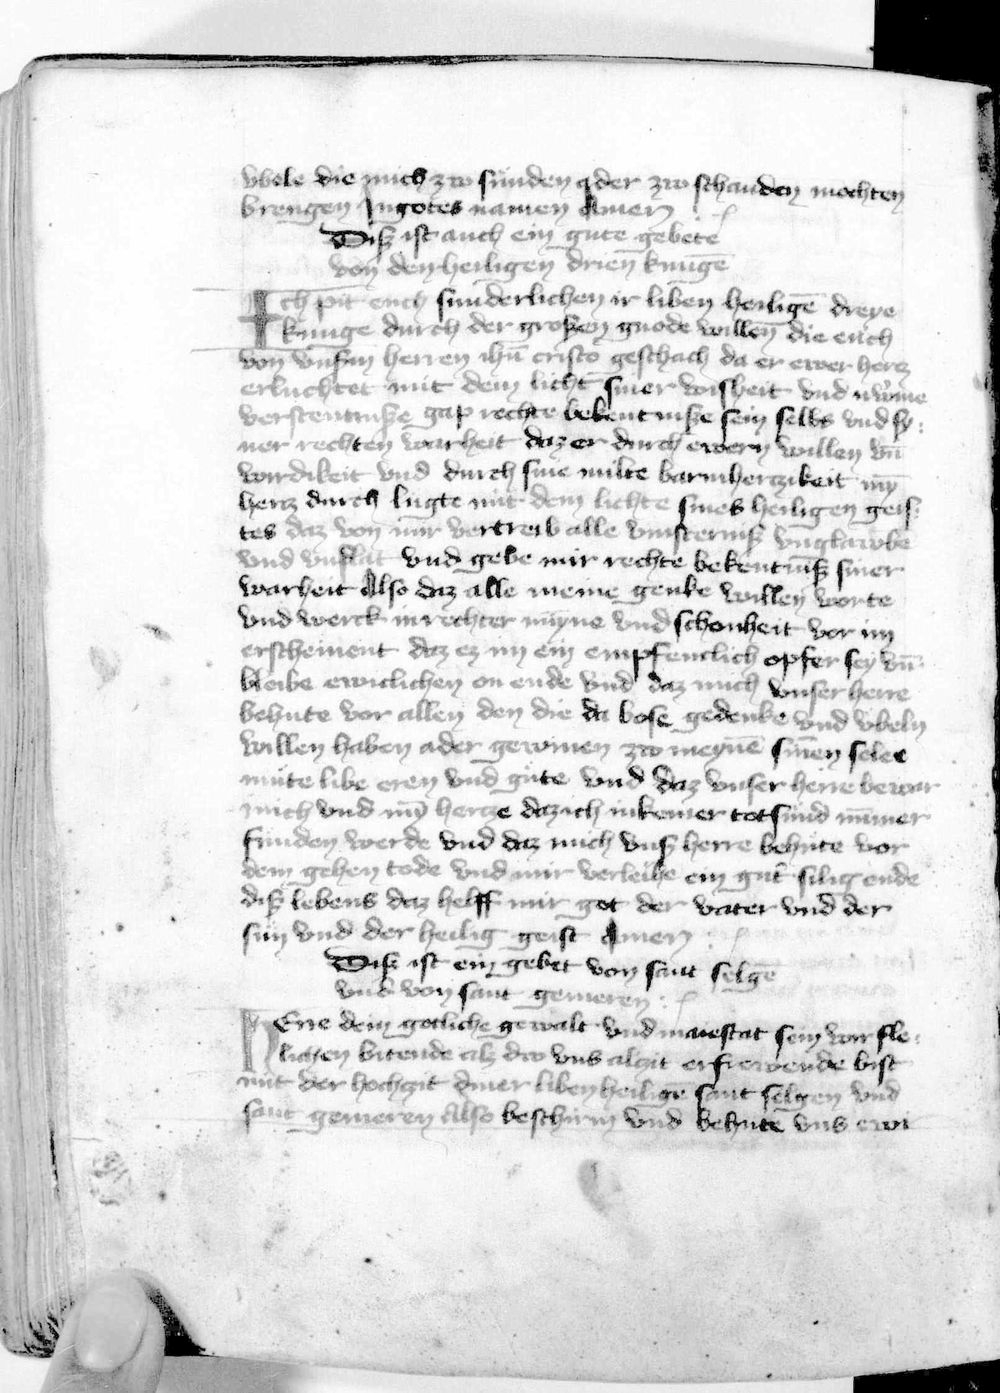 vbele die mich zw sunden oder zw schanden mochten
brengen In gotes namen Amen
Disz ist auch ein gute gebete
von den heiligen drien kunige
Ich pit euch sunderlichen ir liben heilige dreye
kunige durch der groszen gnode willen die euch
von vnserm herren ihu cristo geschach da er ewer hercz
erluchtet mit dem licht siner wisheit vnd
verstentnisze gap rechte bekentnisze sein selbs vnd sy
ner rechten warheit daz er durch ewern willen vn
wirdikeit vnd durch sine milte barmherczikeit my
hercz durch lugte mit dem lichte sines heiligen geis
tes daz von mir vertreib alle vinsternisz vnglawbe
vnd vnflat vnd gebe mir rechte bekentnisz siner
warheit Also daz alle meine genke willen worte
vnd werck in rechter mynne vnd schonheit vor im
erscheinent daz ez im ein empfenclich opfer sey vn
bleibe ewiclichen on ende vnd daz mich vnser herre
behute vor allen den die da bose gedenke vnd vbeln
willen haben ader gewinen zw meyne sinnen selee
mute libe eren vnd gute vnd daz vnser herre bewar
mich vnd my hercze daz ich in keiner totsund nimer
funden werde vnd daz mich vnsz herre behute vor
dem gehen tode vnd mir verleihe ein gut silig ende
disz lebens daz helff mir got der vater vnd der
sun vnd der heilig geist Amen
Disz ist ein gebet von sant felge
vnd von sant
HErre dein gotliche gewalt vnd maiestat sein wir fle
lichen bitende alz dw vns alzit erfrewende bist
mit der hochzit diner liben heilige sant felgen vnd
sant Also beschirm vnd behute vns ewi